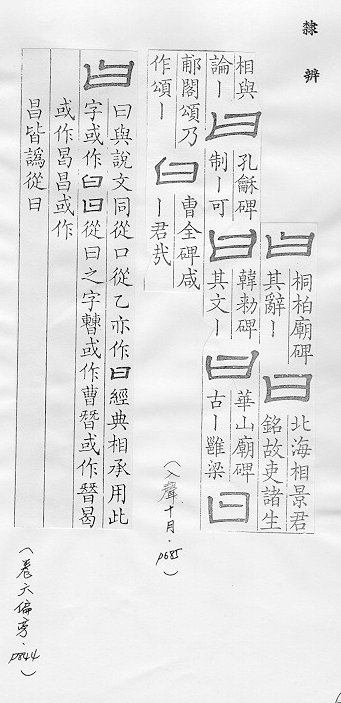 隸辨
曰
桐柏廟碑
其辭丨
曰
北海相景君
銘故吏諸生
相與
論丨
曰
孔龢碑
制丨可
曰
韓勑碑
其文丨
曰
華山廟碑
古丨雖梁
曰
郙閣頌乃
作頌丨
曰
曹全碑咸
丨君哉
(入聲十月·p685)
曰
曰與說文同從口從乙亦作曰經典相承用此
字或作曰曰從曰之字或作曹朁或作曷
或作昌或作
昌皆譌從日
(卷六偏旁·p844)